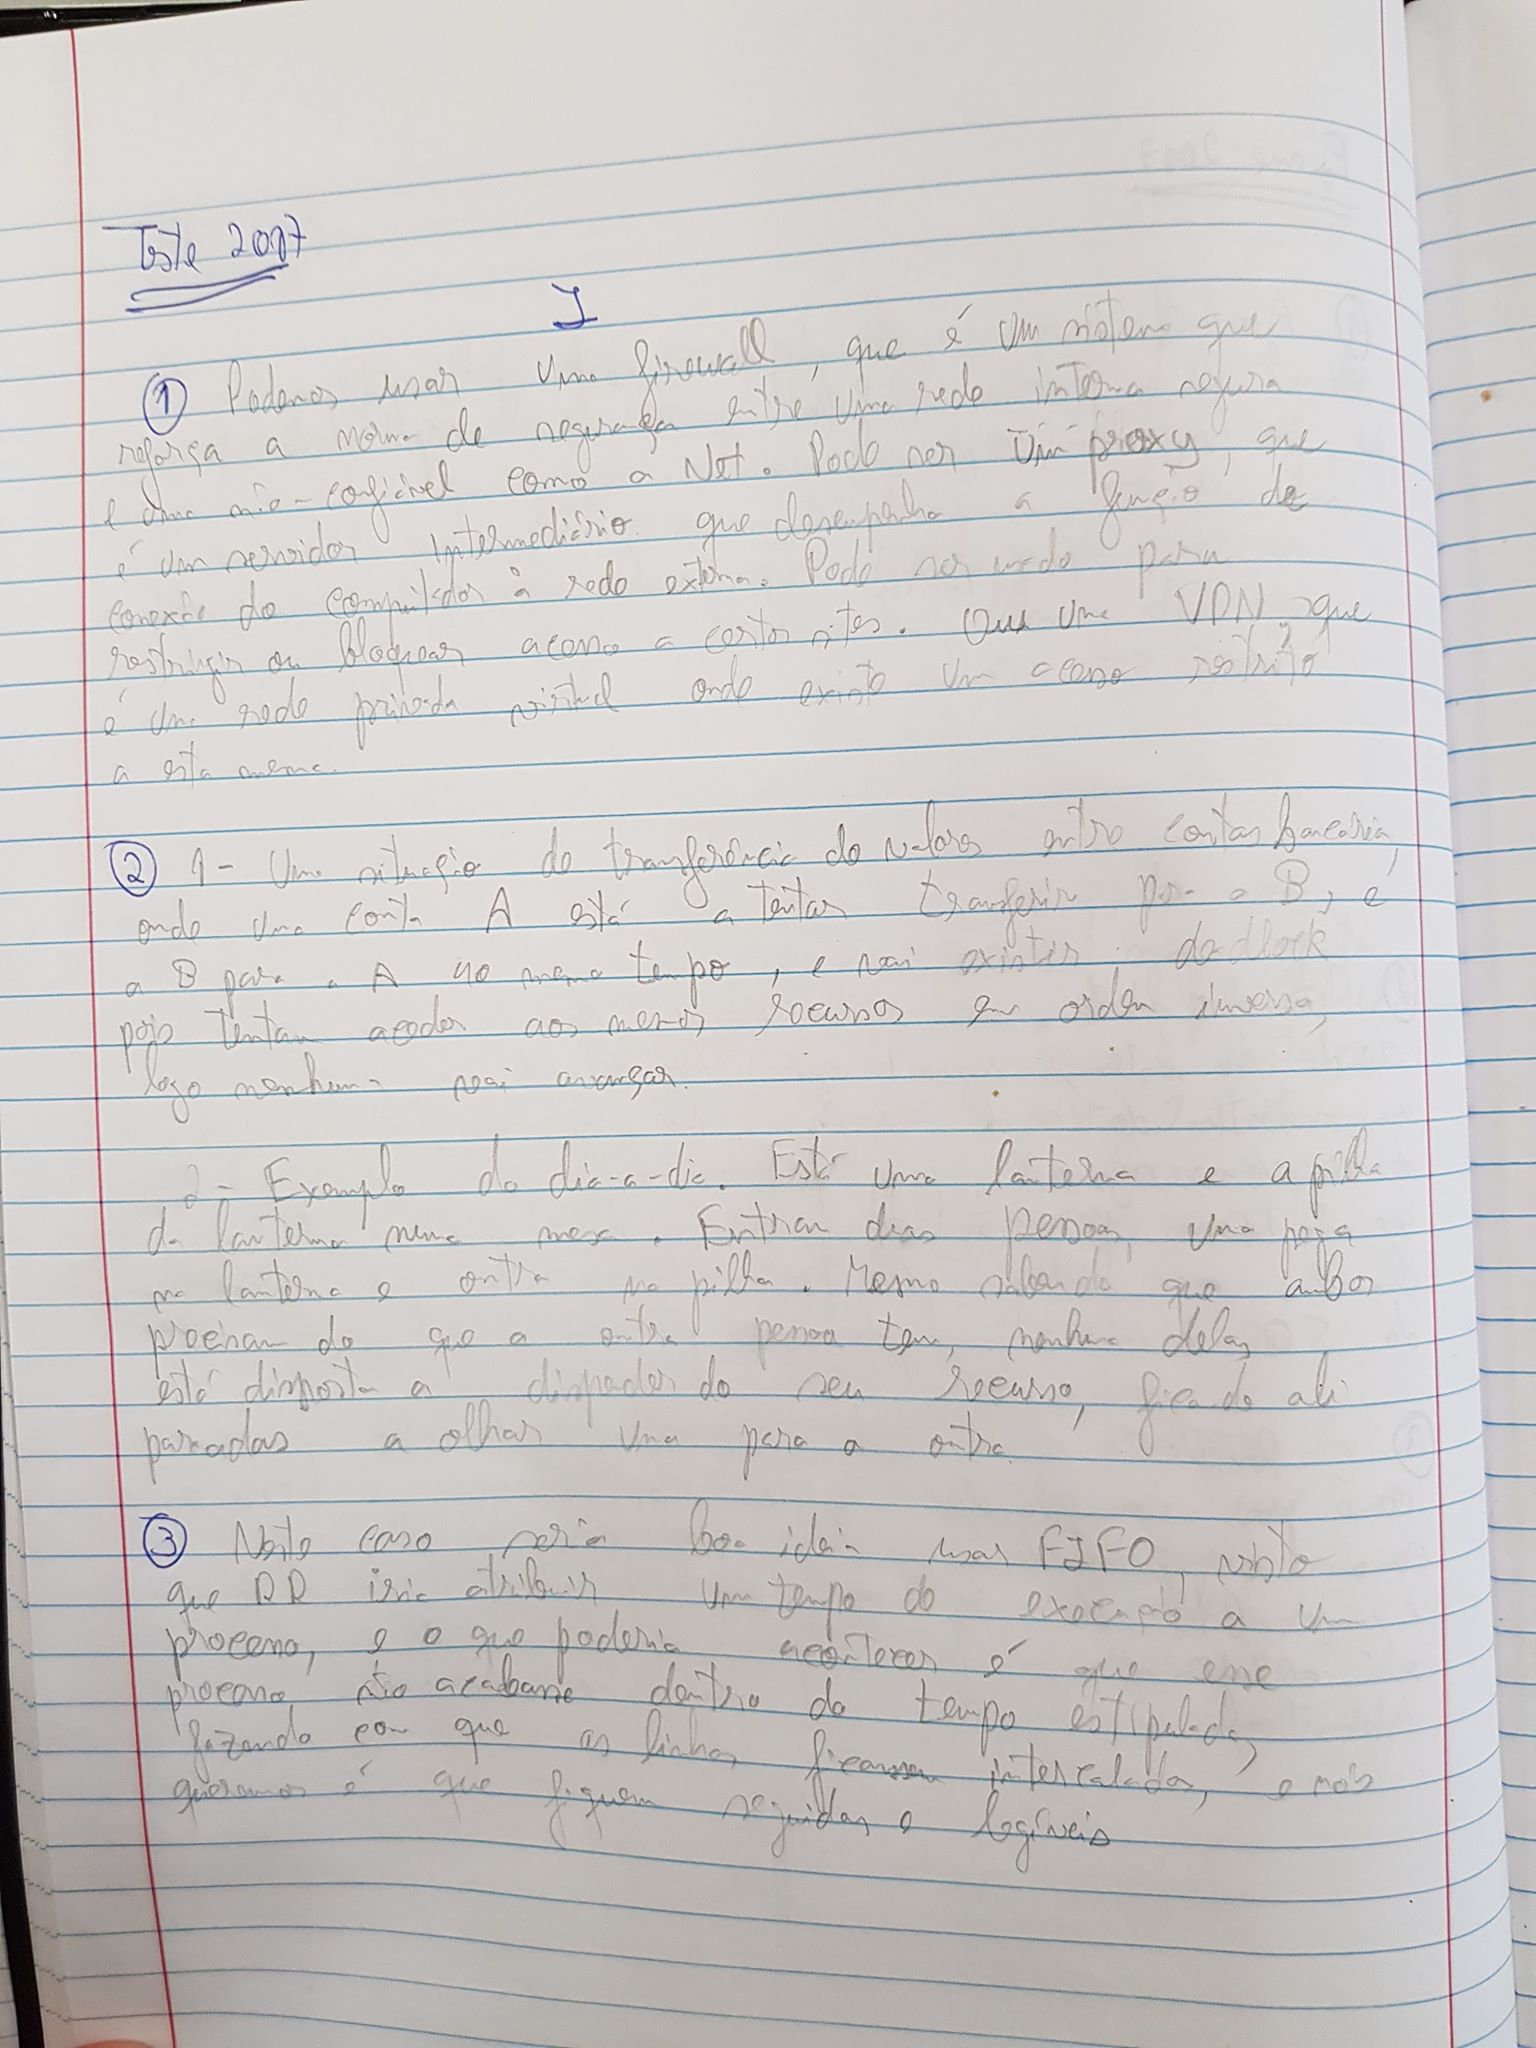 Teste 2017
I
① Podemos usar uma firewall, que é um sistema que
reforça a norma de segurança entre uma rede interna segura
e uma não-confiável como a Net. Pode ser um proxy, que
é um servidor intermediário que desempenha a função de
conexão do computador à rede externa. Pode ser usado para
restringir ou bloquear acesso a certos sites. Ou uma VPN, que
é uma rede privada virtual onde existe um acesso restrito
a esta mesma.
② 1- Uma situação de transferência de valores entre contas bancária,
onde uma conta A está a tentar transferir para a B, e
a B para a A ao mesmo tempo, e vai existir deadlock
pois tentam aceder aos mesmos recursos em ordem inversa,
logo nenhuma vai avançar.
2- Exemplo do dia-a-dia. Está uma lanterna e a pilha
da lanterna numa mesa. Entram duas pessoas, uma pega
na lanterna e outra na pilha. Mesmo sabendo que ambos
precisam do que a outra pessoa tem, nenhuma delas
está disposta a do seu recurso, ficando ali
paradas a olhar uma para a outra.
③ Neste caso seria boa ideia usar FIFO, visto
que RR iria atribuir um tempo de execução a um
processo, e o que poderia acontecer é que esse
processo não acabasse dentro do tempo estipulado,
fazendo com que as linhas ficassem intercaladas, e nós
queremos é que fiquem seguidas e legíveis